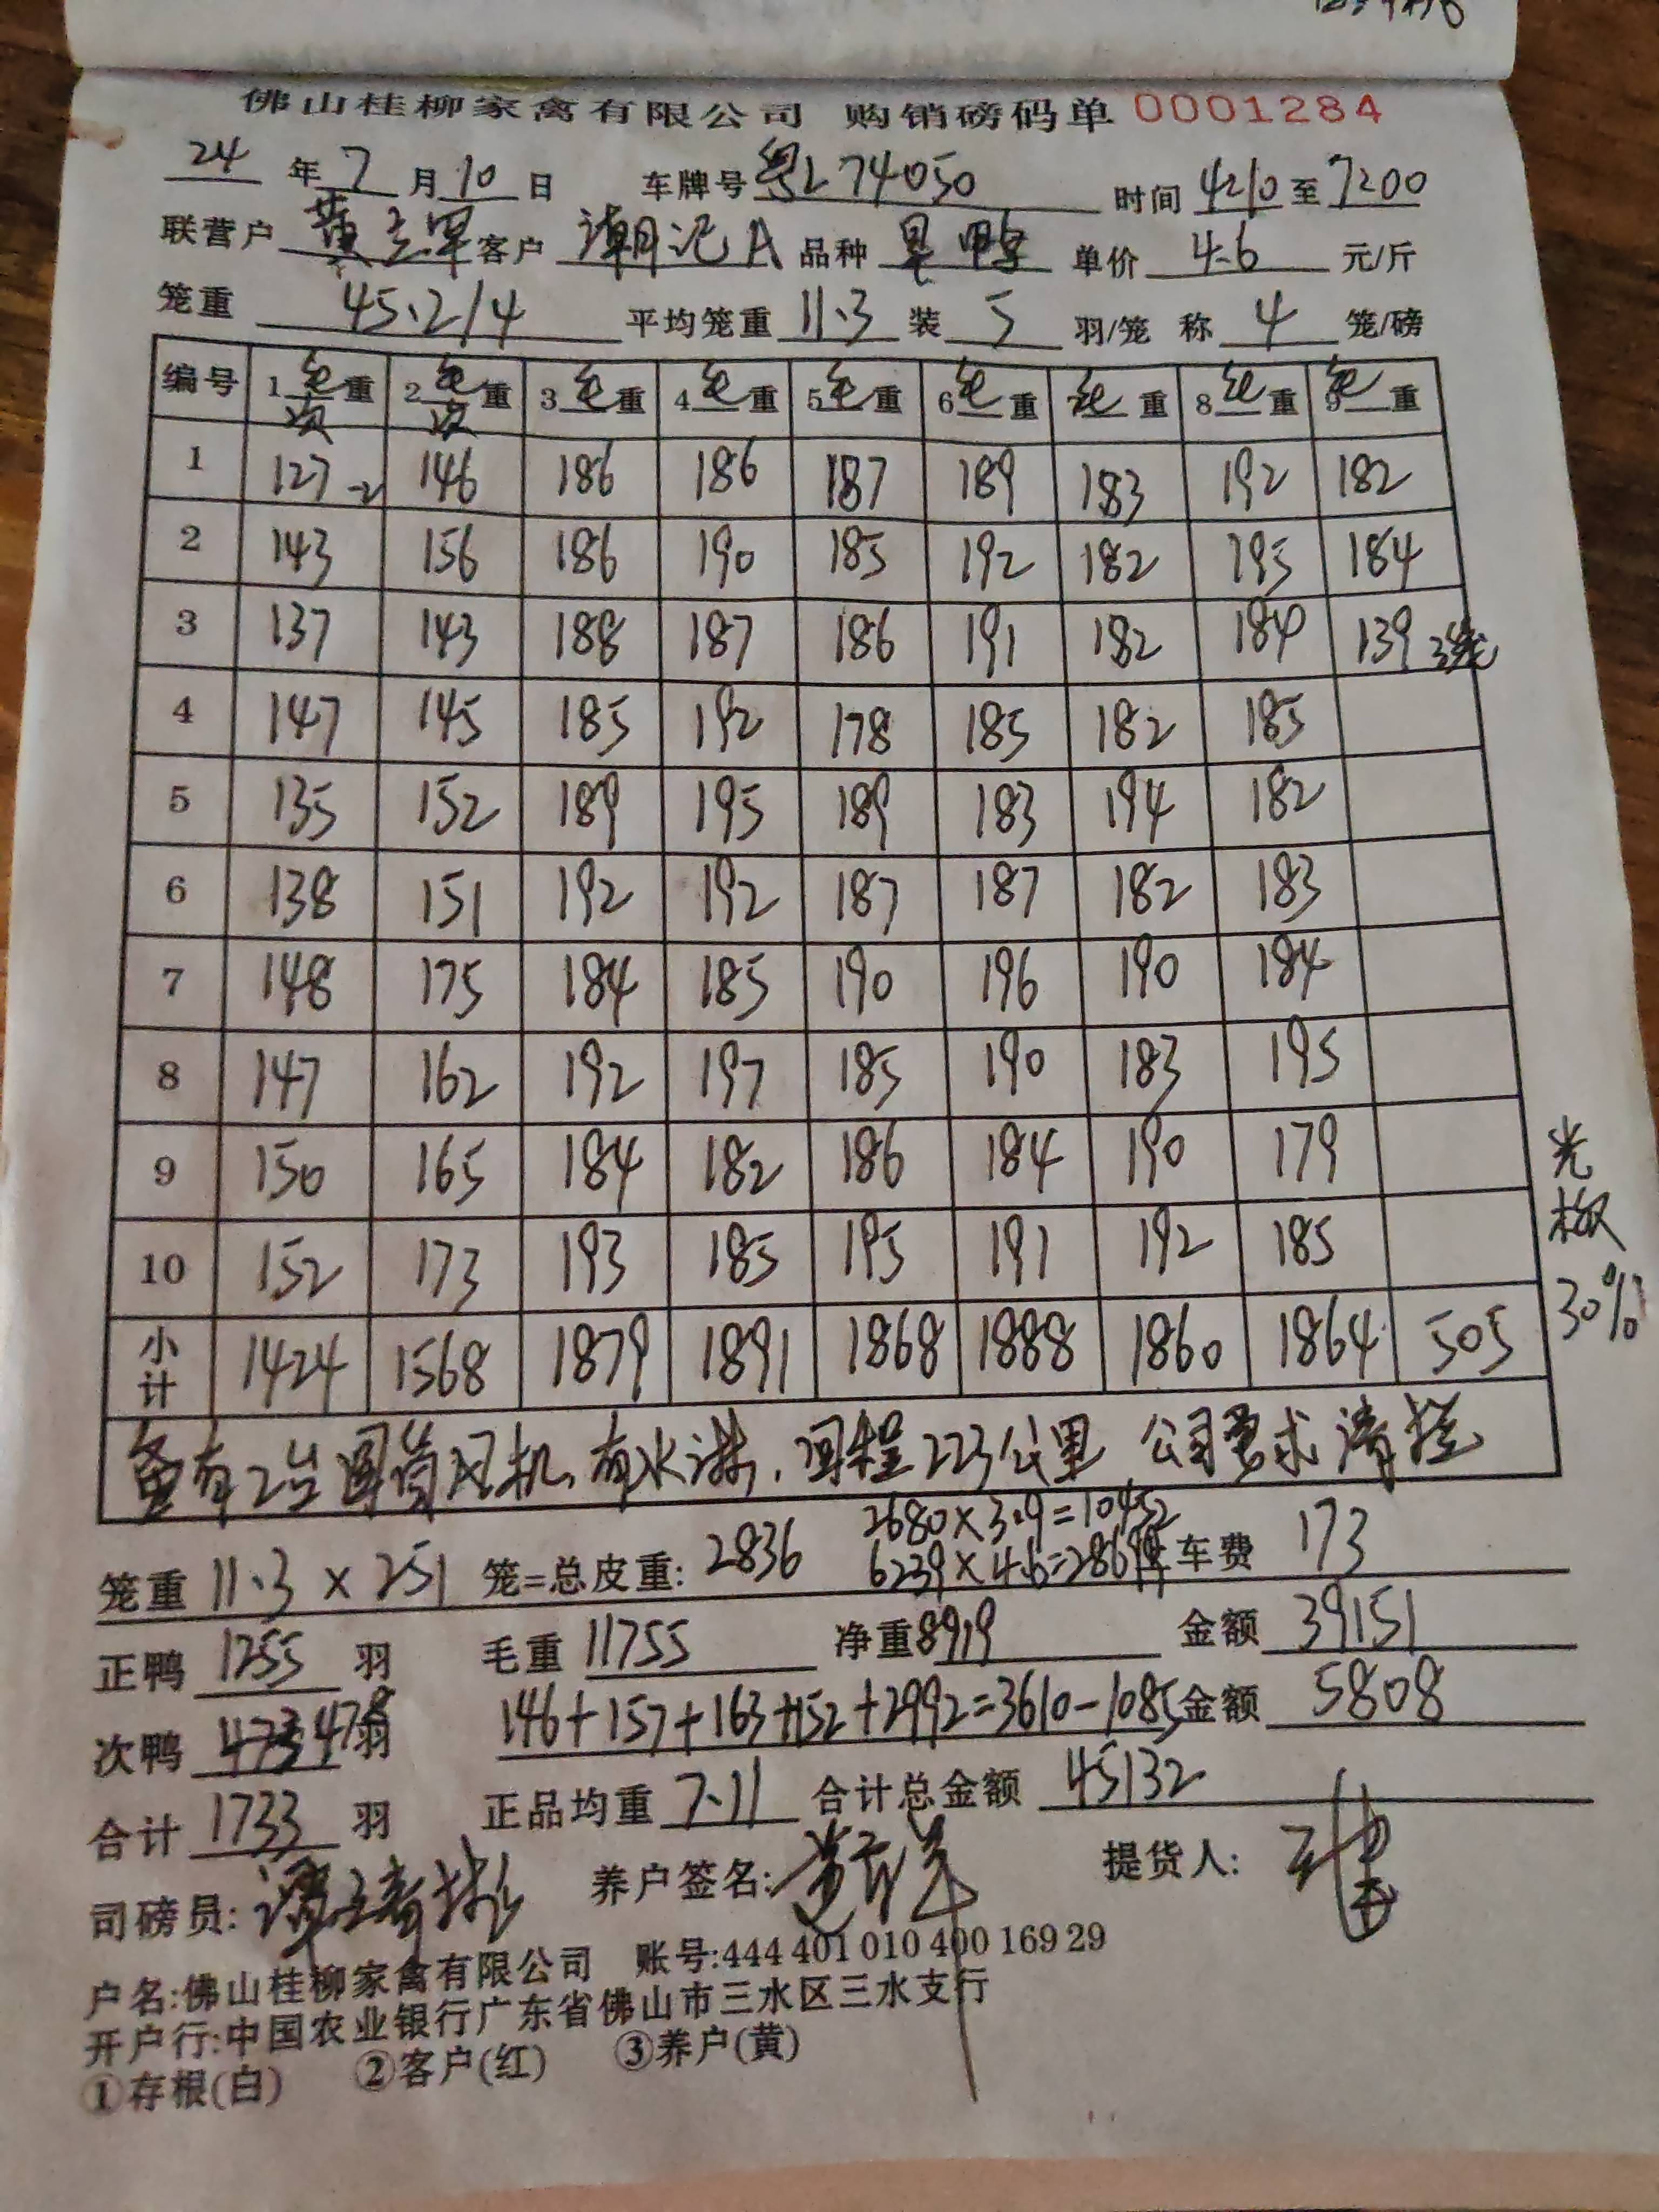 佛山桂柳家禽有限公司 购销磅码单 0001284
24 年 7 月 10 日 车牌号 粤L74050 时间 4210 至 7200
联营户 黄 客户 潮记A 品种 鸭 单价 4.6 元/斤
笼重 45.2/4 平均笼重 11.3 装 5 羽/笼 称 4 笼/磅
编号 1 毛 重 2 毛 重 3 毛 重 4 毛 重 5 毛 重 6 毛 重 毛 重 8 毛 重 9 毛 重
次 次
1 127 -2 146 186 186 187 189 183 192 182
2 143 156 186 190 185 192 182 195 184
3 137 143 188 187 186 191 182 184 139 3笼
4 147 145 185 192 178 185 182 185
5 135 152 189 195 189 183 194 182
6 138 151 192 192 187 187 182 183
7 148 175 184 185 190 196 190 184
8 147 162 192 197 185 190 183 195
9 150 165 184 182 186 184 190 179
10 152 173 193 185 195 191 192 185
小计 1424 1568 1879 1891 1868 1888 1860 1864 505
光板 30%
备有2台圆筒风机、有水淋、回程223公里 公司要求清栏
2680×3.9=10452
笼重 11.3 × 251 笼=总皮重: 2836 6239×4.6=28699 车费 173
正鸭 1255 羽 毛重 11755 净重 8919 金额 39151
次鸭 473 478 羽 146+157+163+152+2992=3610-1085 金额 5808
合计 1733 羽 正品均重 7.11 合计总金额 45132
司磅员: 养户签名: 提货人:
户名:佛山桂柳家禽有限公司 账号:444 401 010 400 169 29
开户行:中国农业银行广东省佛山市三水区三水支行
①存根(白) ②客户(红) ③养户(黄)